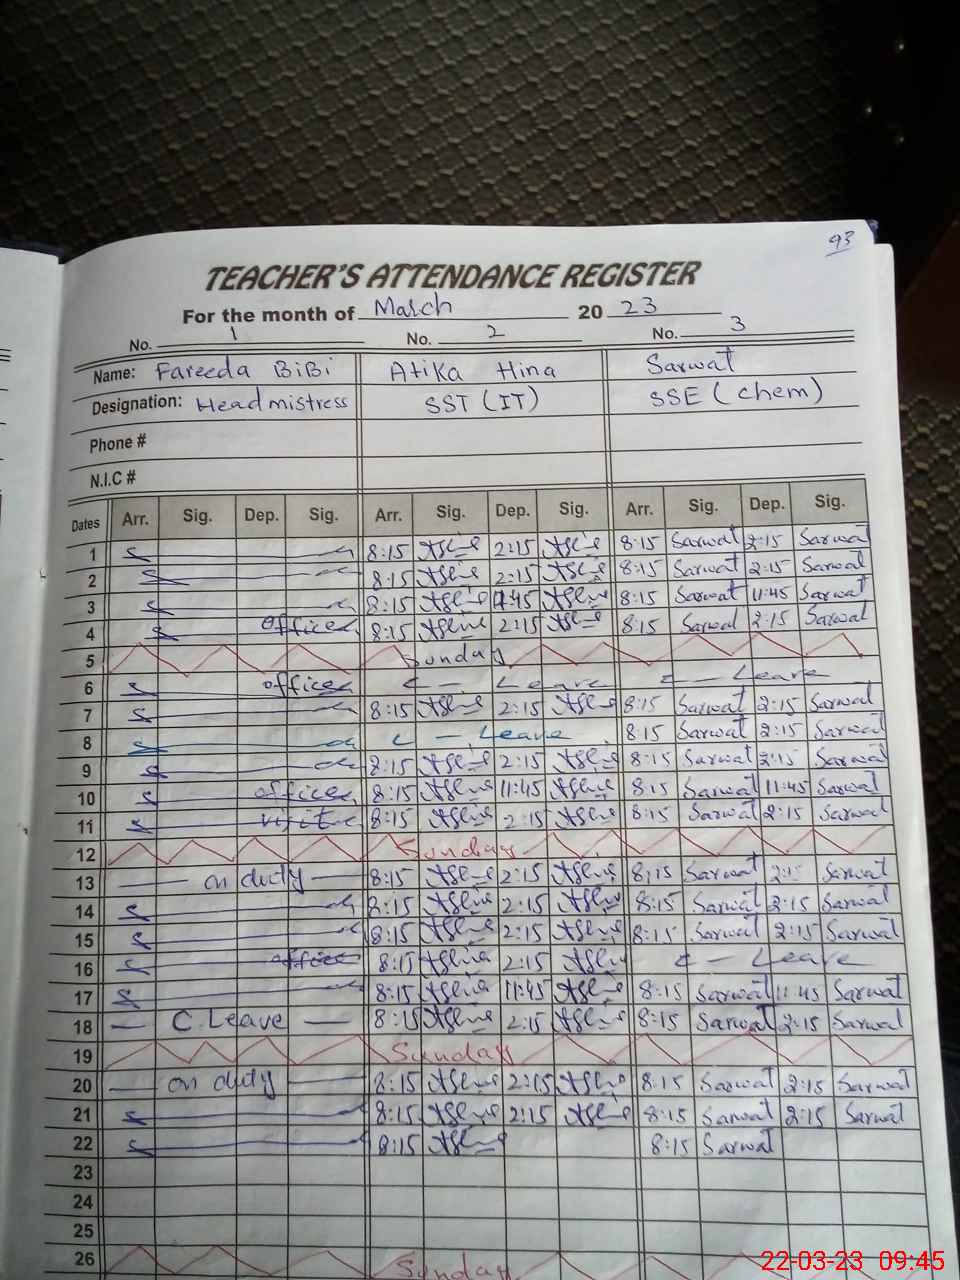 93
TEACHER'S ATTENDANCE REGISTER
For the month of March 2023
No. 1 No. 2 No. 3
Name: Fareeda BiBi Atika Hina Sarwat
Designation: Headmistress SST (IT) SSE (chem)
Phone #
N.I.C #
Dates Arr. Sig. Dep. Sig. Arr. Sig. Dep. Sig. Arr. Sig. Dep. Sig.
1 8:15 2:15 8:15 Sarwat 2:15 Sarwat
2 8:15 2:15 8:15 Sarwat 2:15 Sarwat
3 8:15 11:45 8:15 Sarwat 11:45 Sarwat
4 office 8:15 2:15 8:15 Sarwat 2:15 Sarwat
5 Sunday
6 office Leave Leave
7 8:15 2:15 8:15 Sarwat 2:15 Sarwat
8 Leave 8:15 Sarwat 2:15 Sarwat
9 8:15 2:15 8:15 Sarwat 2:15 Sarwat
10 office 8:15 11:45 8:15 Sarwat 11:45 Sarwat
11 visit 8:15 2:15 8:15 Sarwat 2:15 Sarwat
12 Sunday
13 on duty 8:15 2:15 8:15 Sarwat 2:15 Sarwat
14 8:15 2:15 8:15 Sarwat 2:15 Sarwat
15 8:15 2:15 8:15 Sarwat 2:15 Sarwat
16 office 8:15 2:15 Leave
17 8:15 11:45 8:15 Sarwat 11:45 Sarwat
18 C. Leave 8:15 2:15 8:15 Sarwat 2:15 Sarwat
19 Sunday
20 on duty 8:15 2:15 8:15 Sarwat 2:15 Sarwat
21 8:15 2:15 8:15 Sarwat 2:15 Sarwat
22 8:15 8:15 Sarwat
23
24
25
26 Sunday
22-03-23 09:45